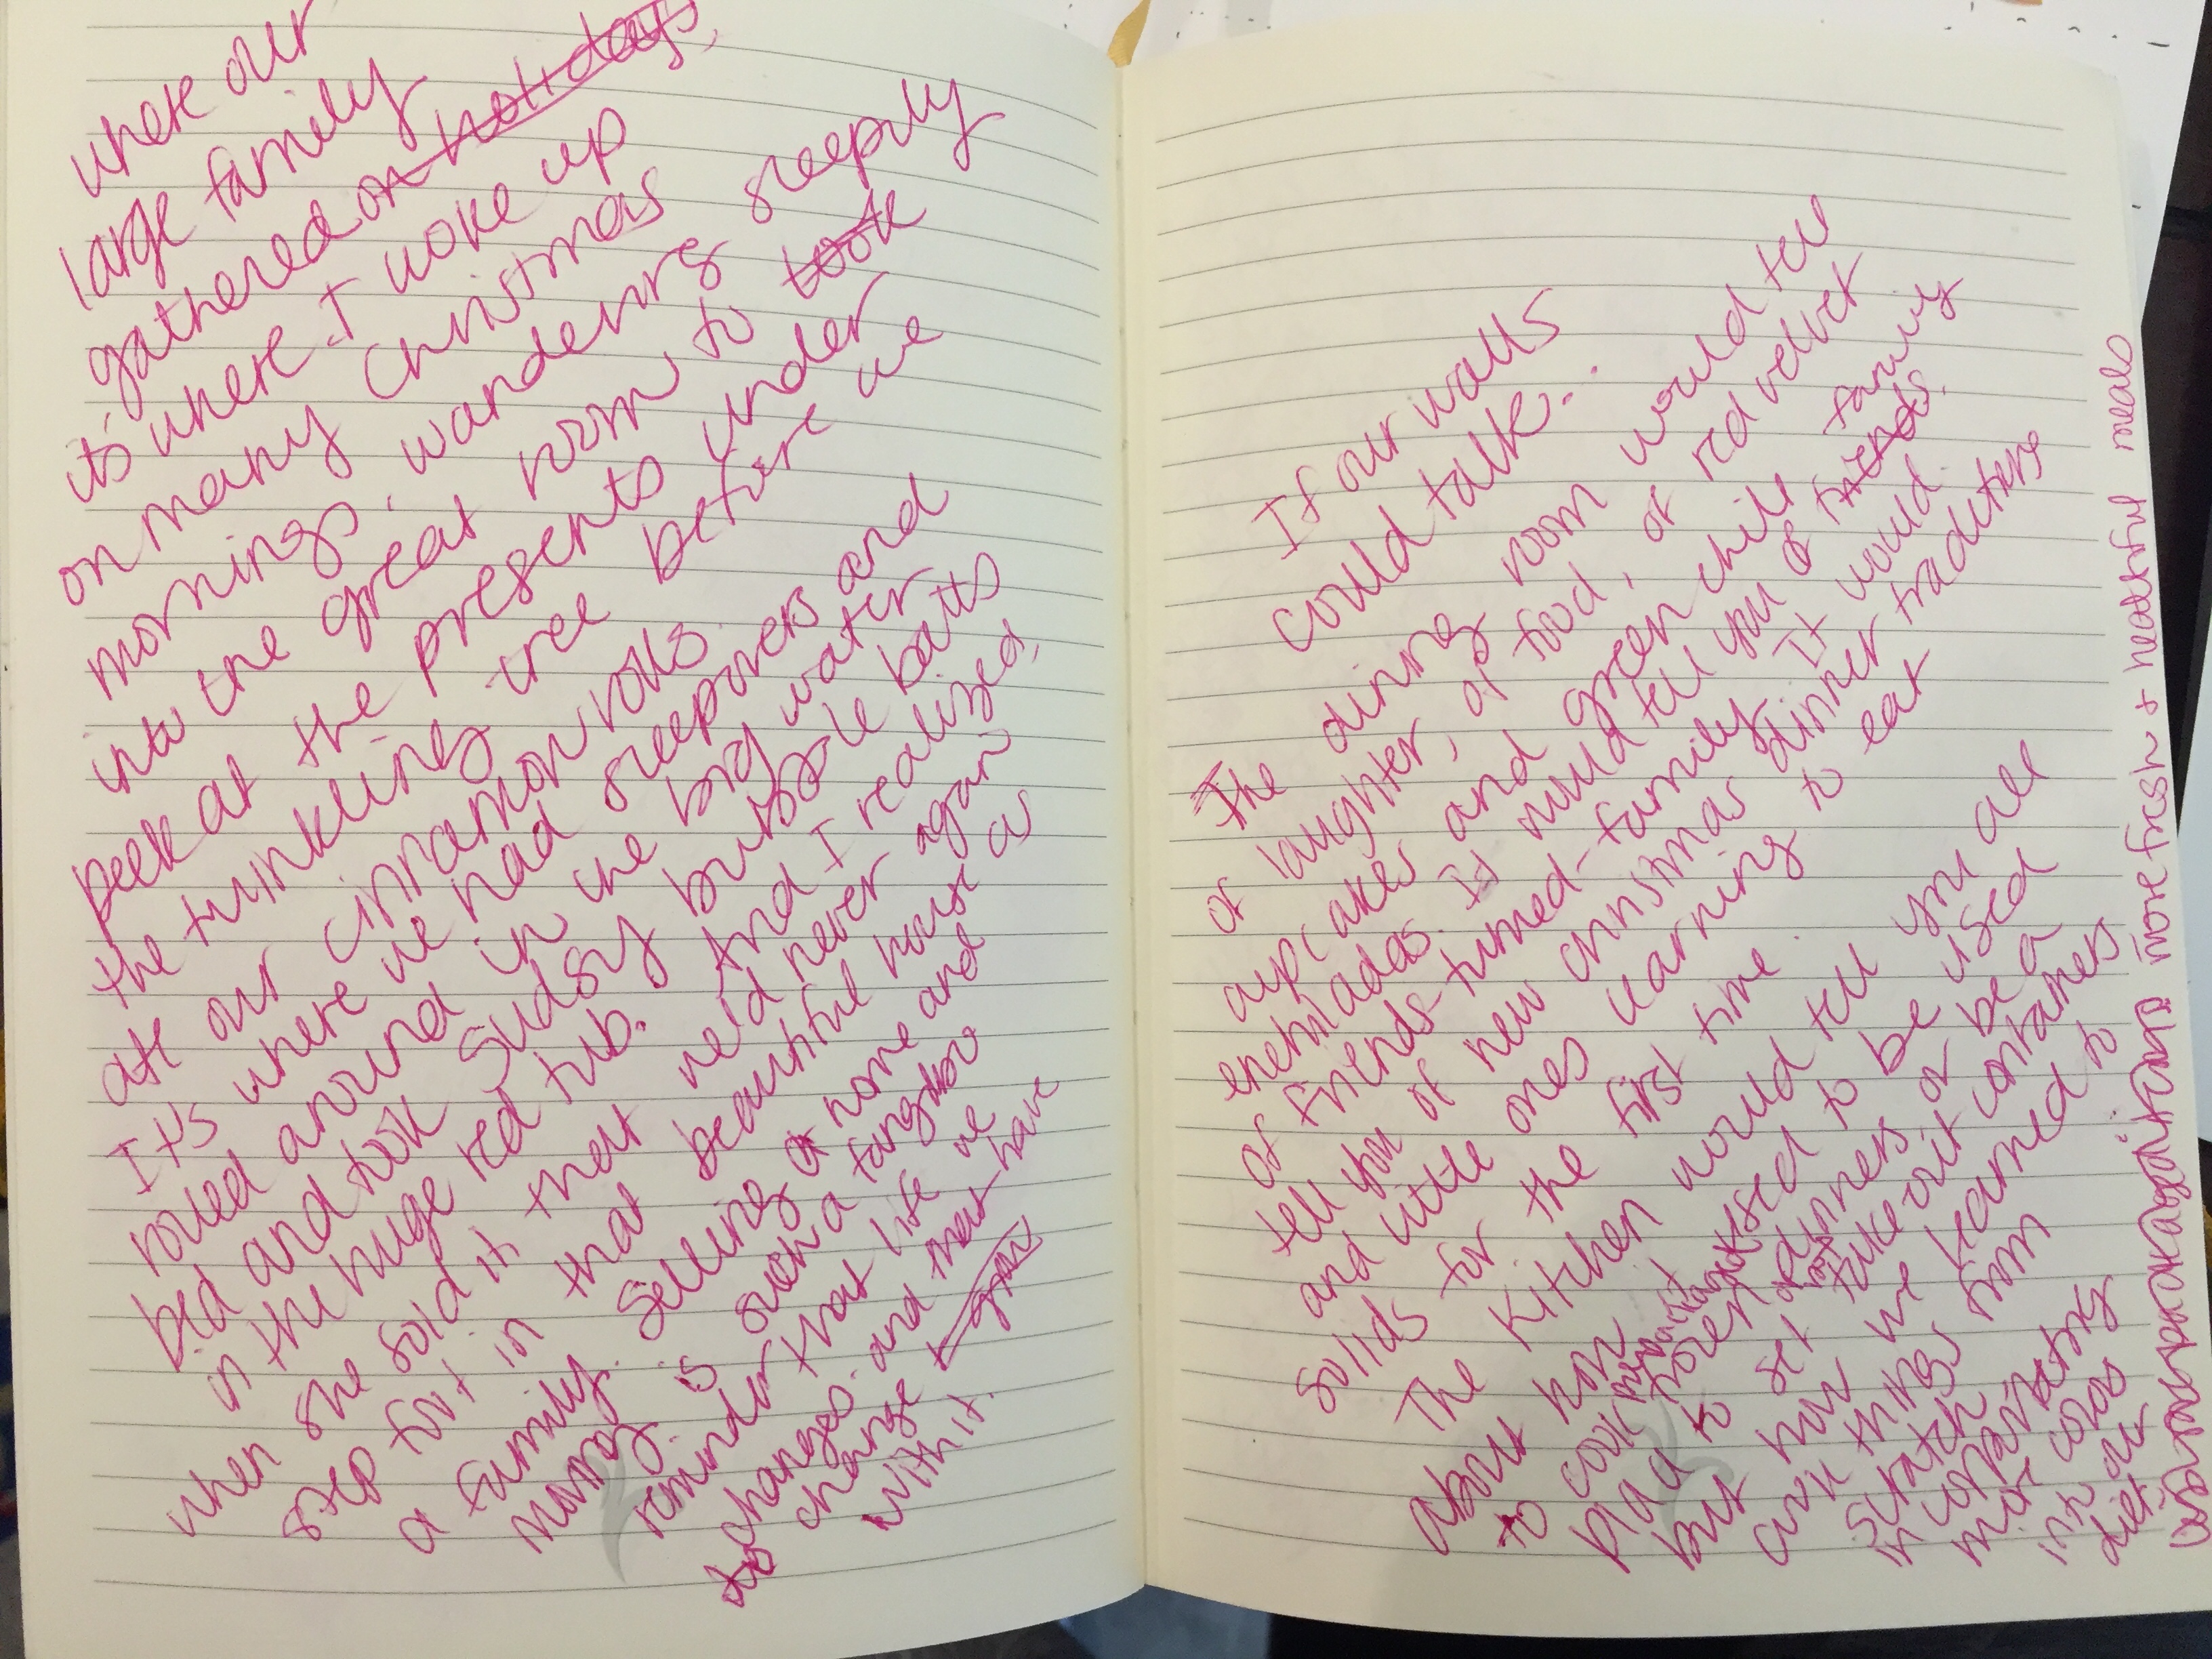 where our
large family
gathered on holidays,
its where I woke up
on many Christmas
mornings, wandering sleepily
into the great room, to took
peek at the presents under
the twinkling tree before we
ate our cinnamon rolls.
It's where we had sleepovers and
rolled around in the big water
bed and took sudsy bubble baths
in the huge red tub. And I realized,
when she sold it that we'd never again
step foot in that beautiful house as
a family. Selling a home and
moving is such a
reminder that life
changes. and that we have
to change
with it.
If our walls
could talk...
The dining room would tell
of laughter, of food, of red velvet
cupcakes and green chile
enchiladas. It would tell you of friends. family
of friends-turned-family. It would
tell you of new christmas dinner traditions
and little ones learning to eat
solids for the first time.
The kitchen would tell you all
about how I used to be used
to cook frozen dinners or be a
place to set take-out containers
but now we learned to
cook things from
scratch
incorporating
more colors
into our
diet.
more fresh + healthful meals